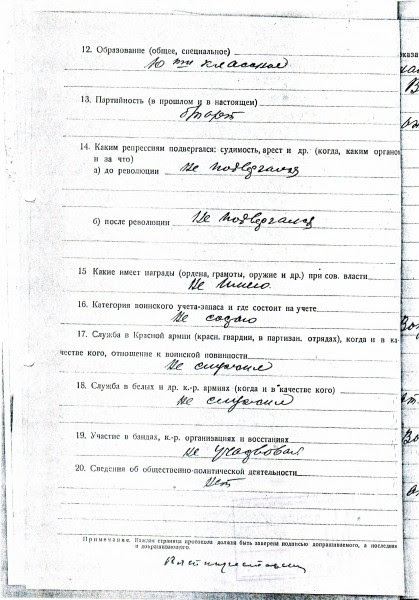 12. Образование (общее, специальное)
10 ти классное
13. Партийность (в прошлом и в настоящем)
б/парт
14. Каким репрессиям подвергался: судимость, арест и др. (когда, каким органом
и за что)
а) до революции Не подвергался
б) после революции Не подвергался
15 Какие имеет награды (ордена, грамоты, оружие и др.) при сов. власти
Не имею
16. Категория воинского учета-запаса и где состоит на учете
Не состою
17. Служба в Красной армии (красн. гвардии, в партизан. отрядах), когда и в ка-
честве кого, отношение к воинской повинности
Не служил
18. Служба в белых и др. к.-р. армиях (когда и в качестве кого)
Не служил
19. Участие в бандах, к.-р. организациях и восстаниях
не участвовал
20. Сведения об общественно-политической деятельности
нет
Примечание. Каждая страница протокола должна быть заверена подписью допрашиваемого, а последняя
и допрашивающего.